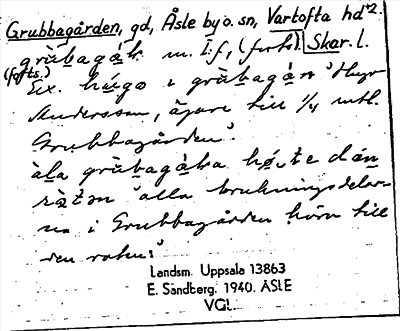 Grubbagården, gd, Åsle by o. sn, Vartofta hd
grùbagàk m. I.f, (forts). Skar. l.
(forts.)
Ex. húgo i grùbagàn 'Hugo
Andersson, ägare till 1/4 mtl.
Grubbagården'.
àla grùbagàka hø te dán
ràtən 'alla brukningsdelar-
na i Grubbagården hörn till
den roten'.
Landsm. Uppsala 13863
E. Sandberg. 1940. ÅSLE
VGL.